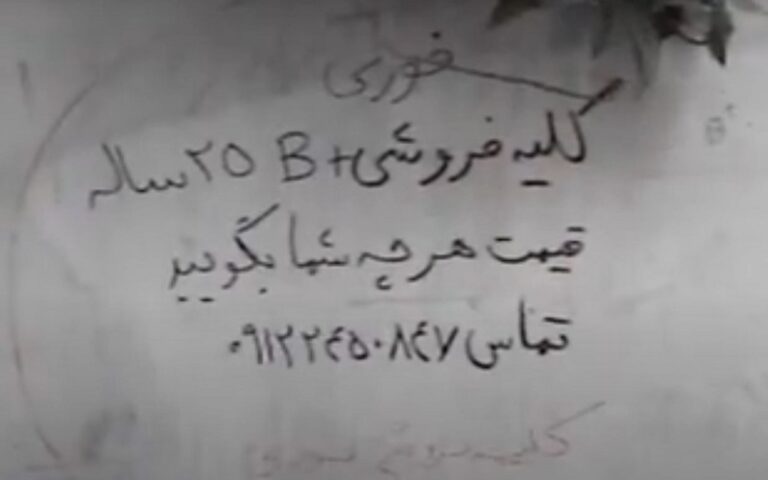 فوری
کلیه فروشی B+ ۲۵ ساله
قیمت هرچه شما بگویید
تماس ۰۹۱۲۲۴۵۰۸۴۷
کلیه فروشی فوری